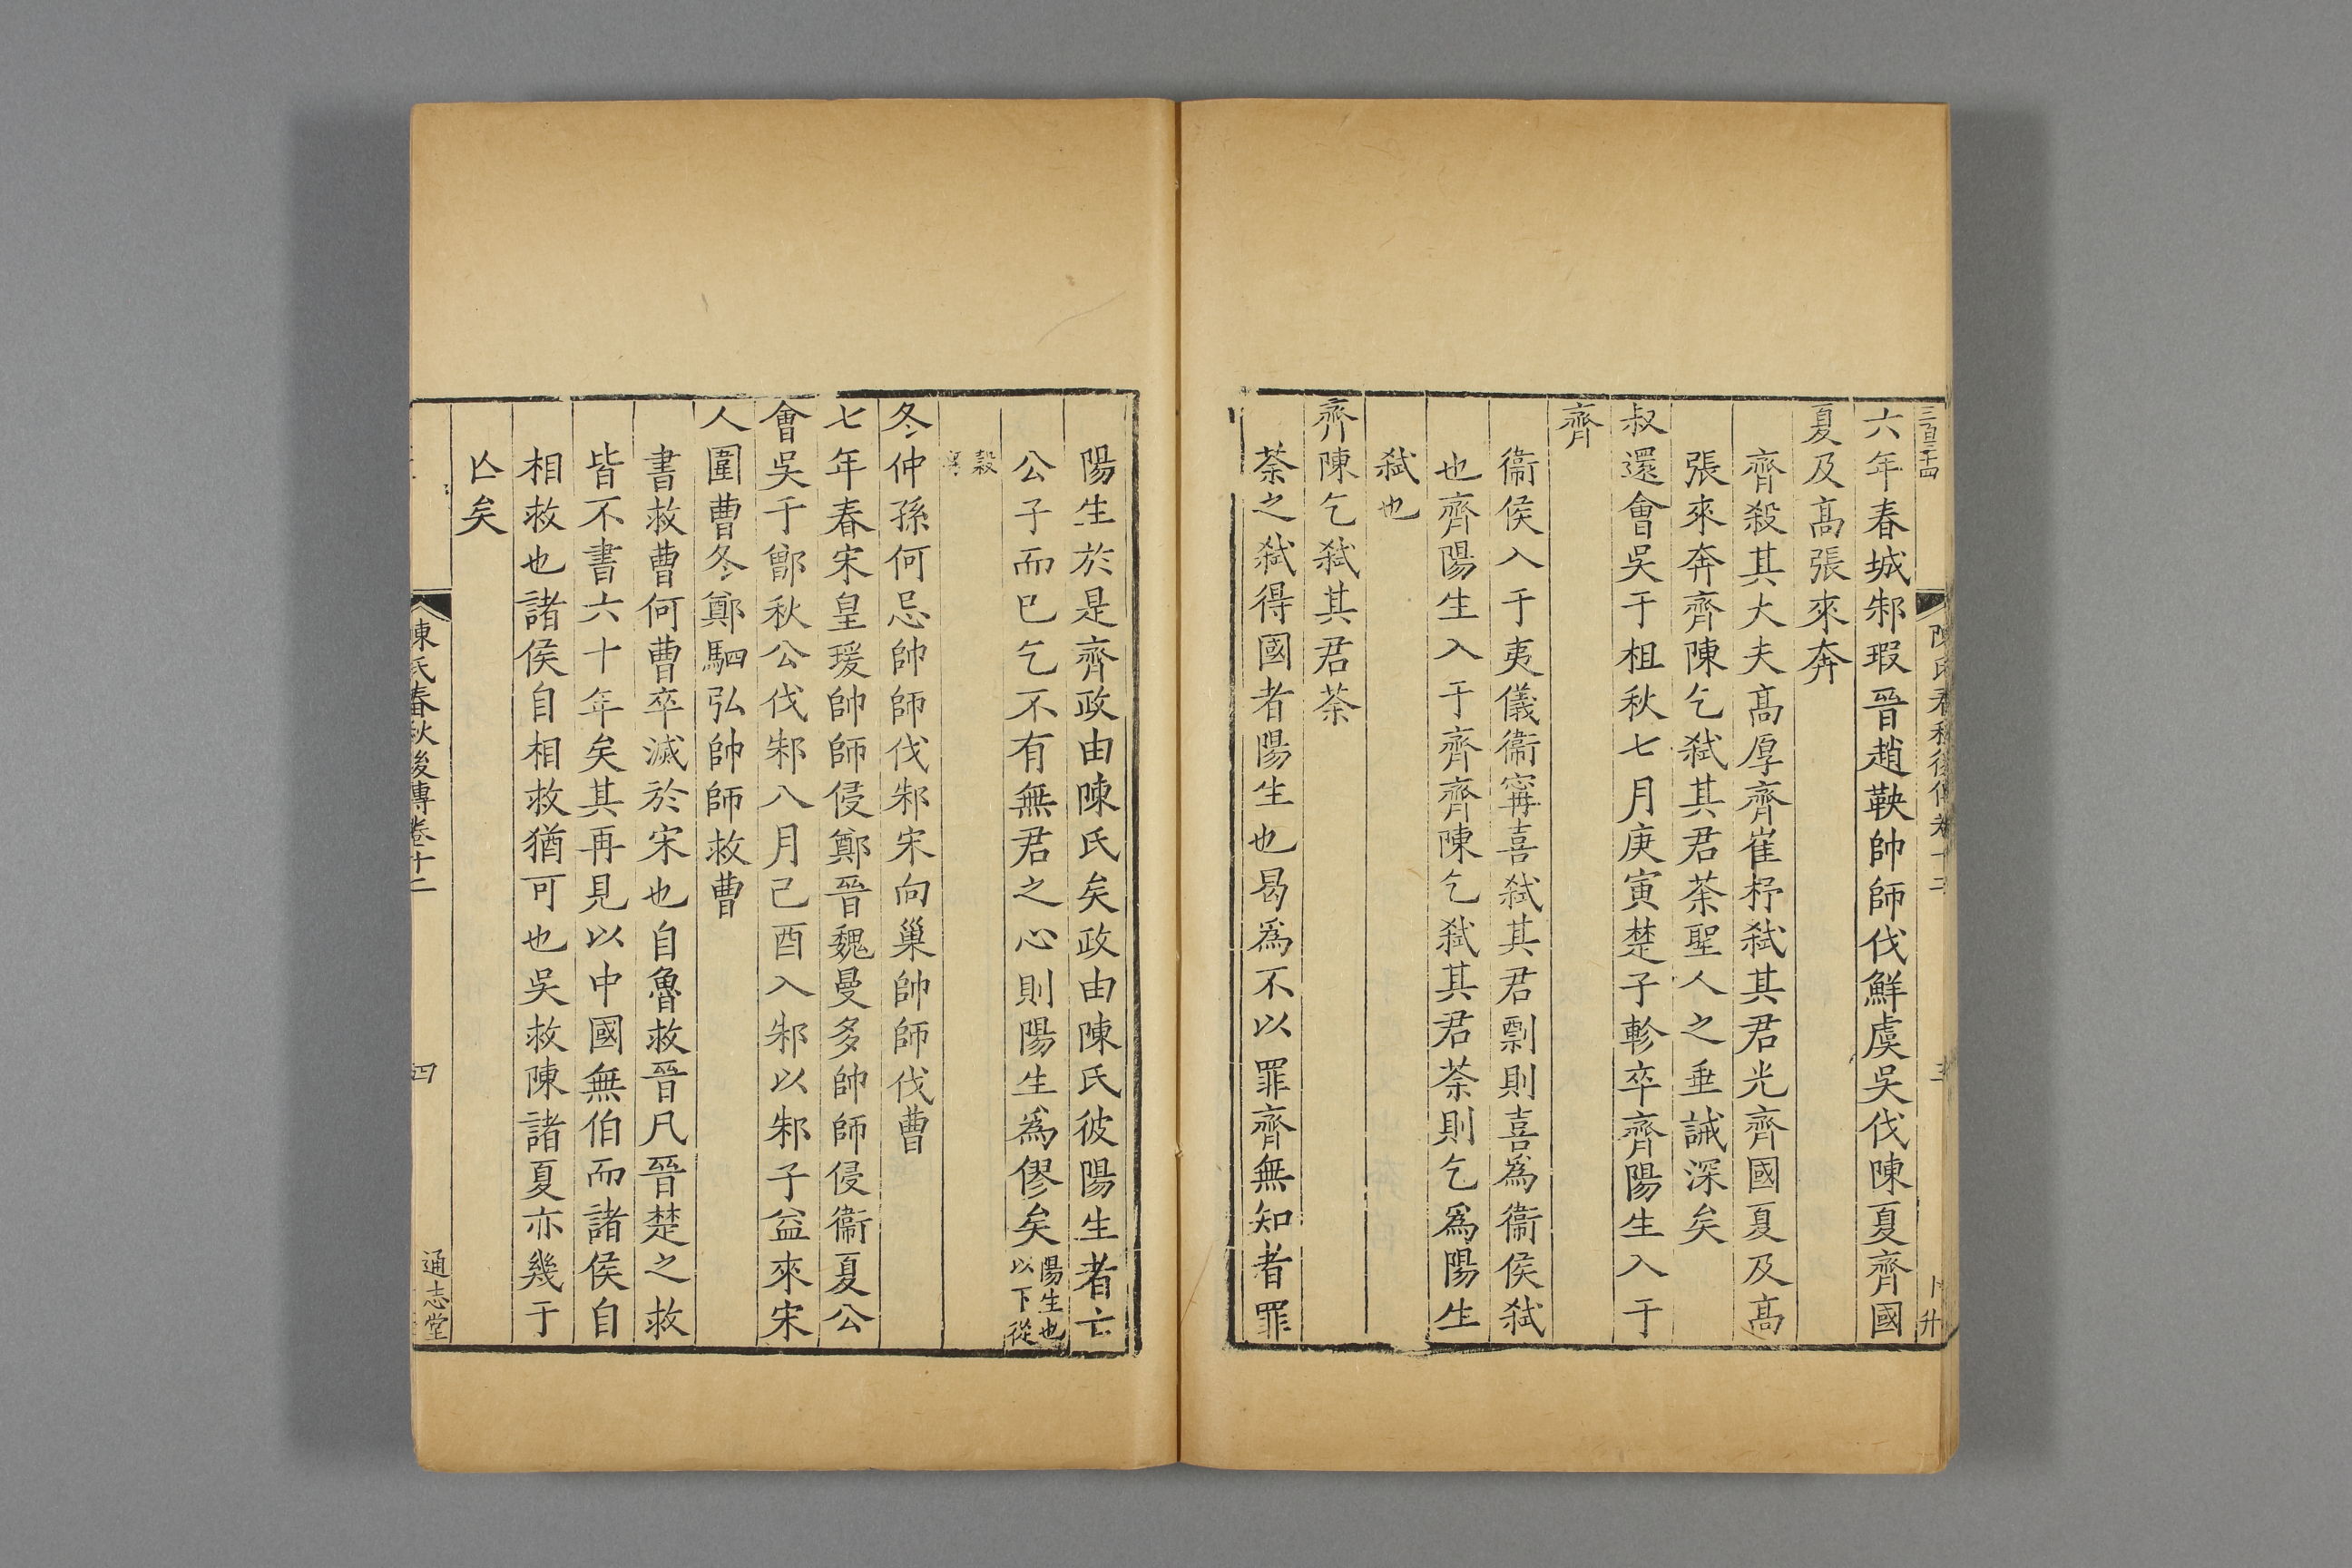 三百三十四
陳氏春秋後傳卷十二
六年春城邾瑕晉趙鞅帥師伐鮮虞吳伐陳夏齊國
夏及髙張來奔
齊殺其大夫髙厚齊崔杼弑其君光齊國夏及髙
張來奔齊陳乞弑其君荼聖人之垂誡深矣
叔還會吳于柤秋七月庚寅楚子軫卒齊陽生入于
齊
衞侯入于夷儀衞甯喜弑其君剽則喜爲衞侯弑
也齊陽生入于齊齊陳乞弑其君荼則乞爲陽生
弑也
齊陳乞弑其君荼
荼之弑得國者陽生也曷爲不以罪齊無知者罪
陽生於是齊政由陳氏矣政由陳氏彼陽生者亡
公子而已乞不有無君之心則陽生爲僇矣陽生也
以下從
穀
冬仲孫何忌帥師伐邾宋向巢帥師伐曹
七年春宋皇瑗帥師侵鄭晉魏曼多帥師侵衞夏公
會吳于鄫秋公伐邾八月己酉入邾以邾子益來宋
人圍曹冬鄭駟弘帥師救曹
書救曹何曹卒滅於宋也自魯救晉凡晉楚之救
皆不書六十年矣其再見以中國無伯而諸侯自
相救也諸侯自相救猶可也吳救陳諸夏亦幾于
亾矣
陳氏春秋後傳卷十二
四
通志堂